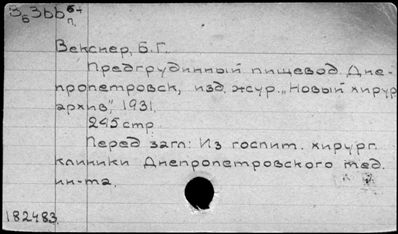 3б3bb б+
п.
Векслер, Б.Г.
Предгрудинный пищевод. Дне-
пропетровск, изд. жур. „Новый хирур.
архив", 1931.
245 стр.
Перед загл: Из госпит. хирург.
клиники Днепропетровского мед.
ин-та.
182483